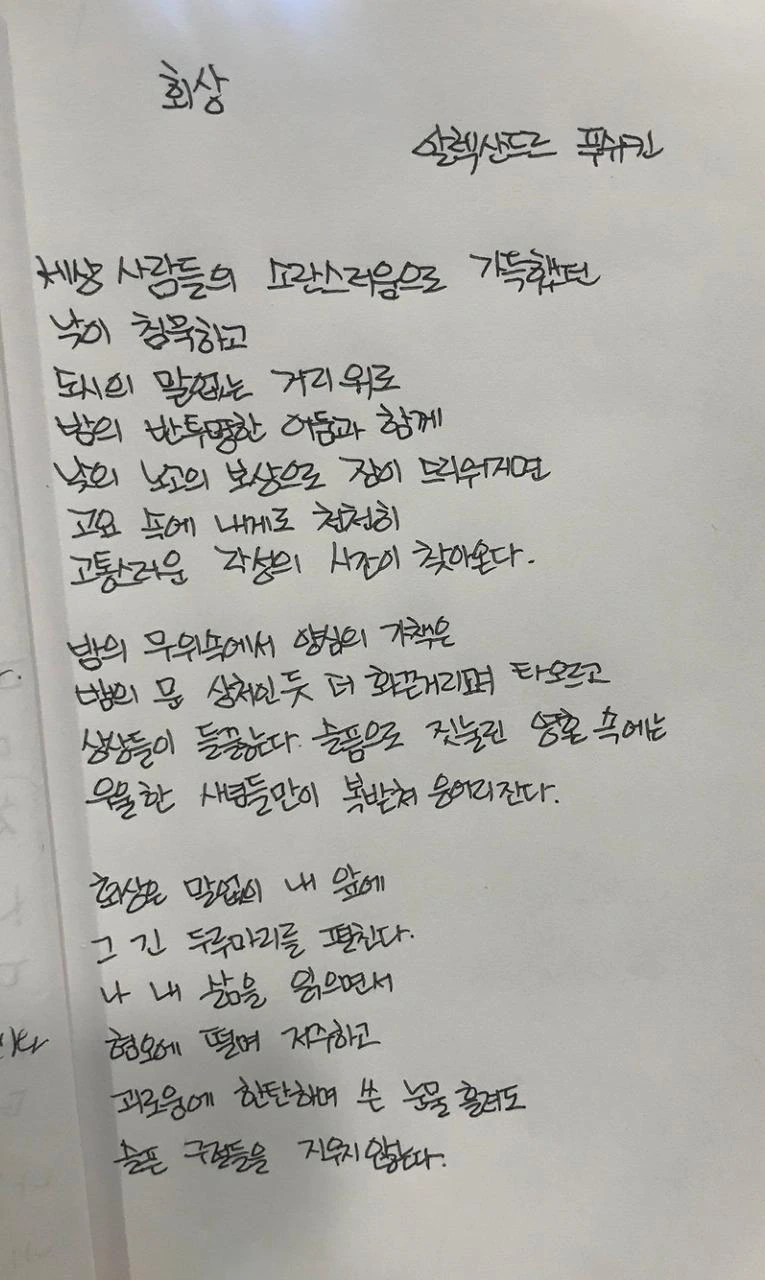 회상
알렉산드르 푸슈킨
세상 사람들의 소란스러움으로 가득했던
낮이 침묵하고
도시의 말없는 거리 위로
밤의 반투명한 어둠과 함께
낮의 노고의 보상으로 잠이 드리워지면
고요 속에 내게로 천천히
고통스러운 각성의 시간이 찾아온다.
밤의 무위속에서 양심의 가책은
뱀의 문 상처인듯 더 화끈거리며 타오르고
상상들이 들끓는다. 슬픔으로 짓눌린 영혼 속에는
우울한 새념들만이 복받쳐 응어리진다.
회상은 말없이 내 앞에
그 긴 두루마리를 펼친다.
나 내 삶을 읽으면서
혐오에 떨며 저주하고
괴로움에 한탄하며 쓴 눈물 흘려도
슬픈 구절들을 지우지 않는다.